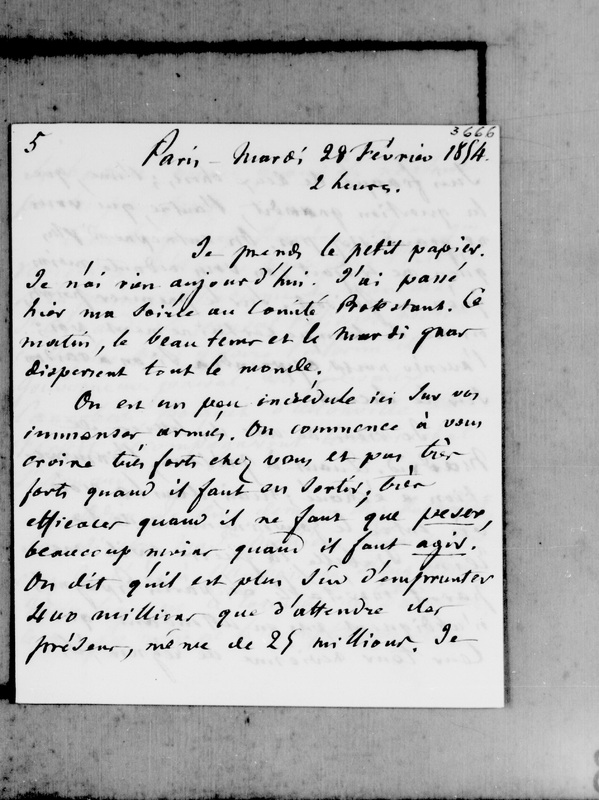 5
3666
Paris - Mardi 28 Février 1854.
2 heures.
Je prends le petit papier.
Je n'ai rien aujourd'hui. J'ai passé
hier ma soirée au Comité Protestant. Ce
matin, le beau tems et le mardi gras
dispersent tout le monde.
On est un peu incrédule ici sur vos
immenses armées. On commence à vous
croire très forts chez vous et pas très
forts quand il faut en sortir; très
efficaces quand il ne faut que peser,
beaucoup moins quand il faut agir.
On dit qu'il est plus sûr d'emprunter
400 millions que d'attendre des
présens, même de 25 millions. Je